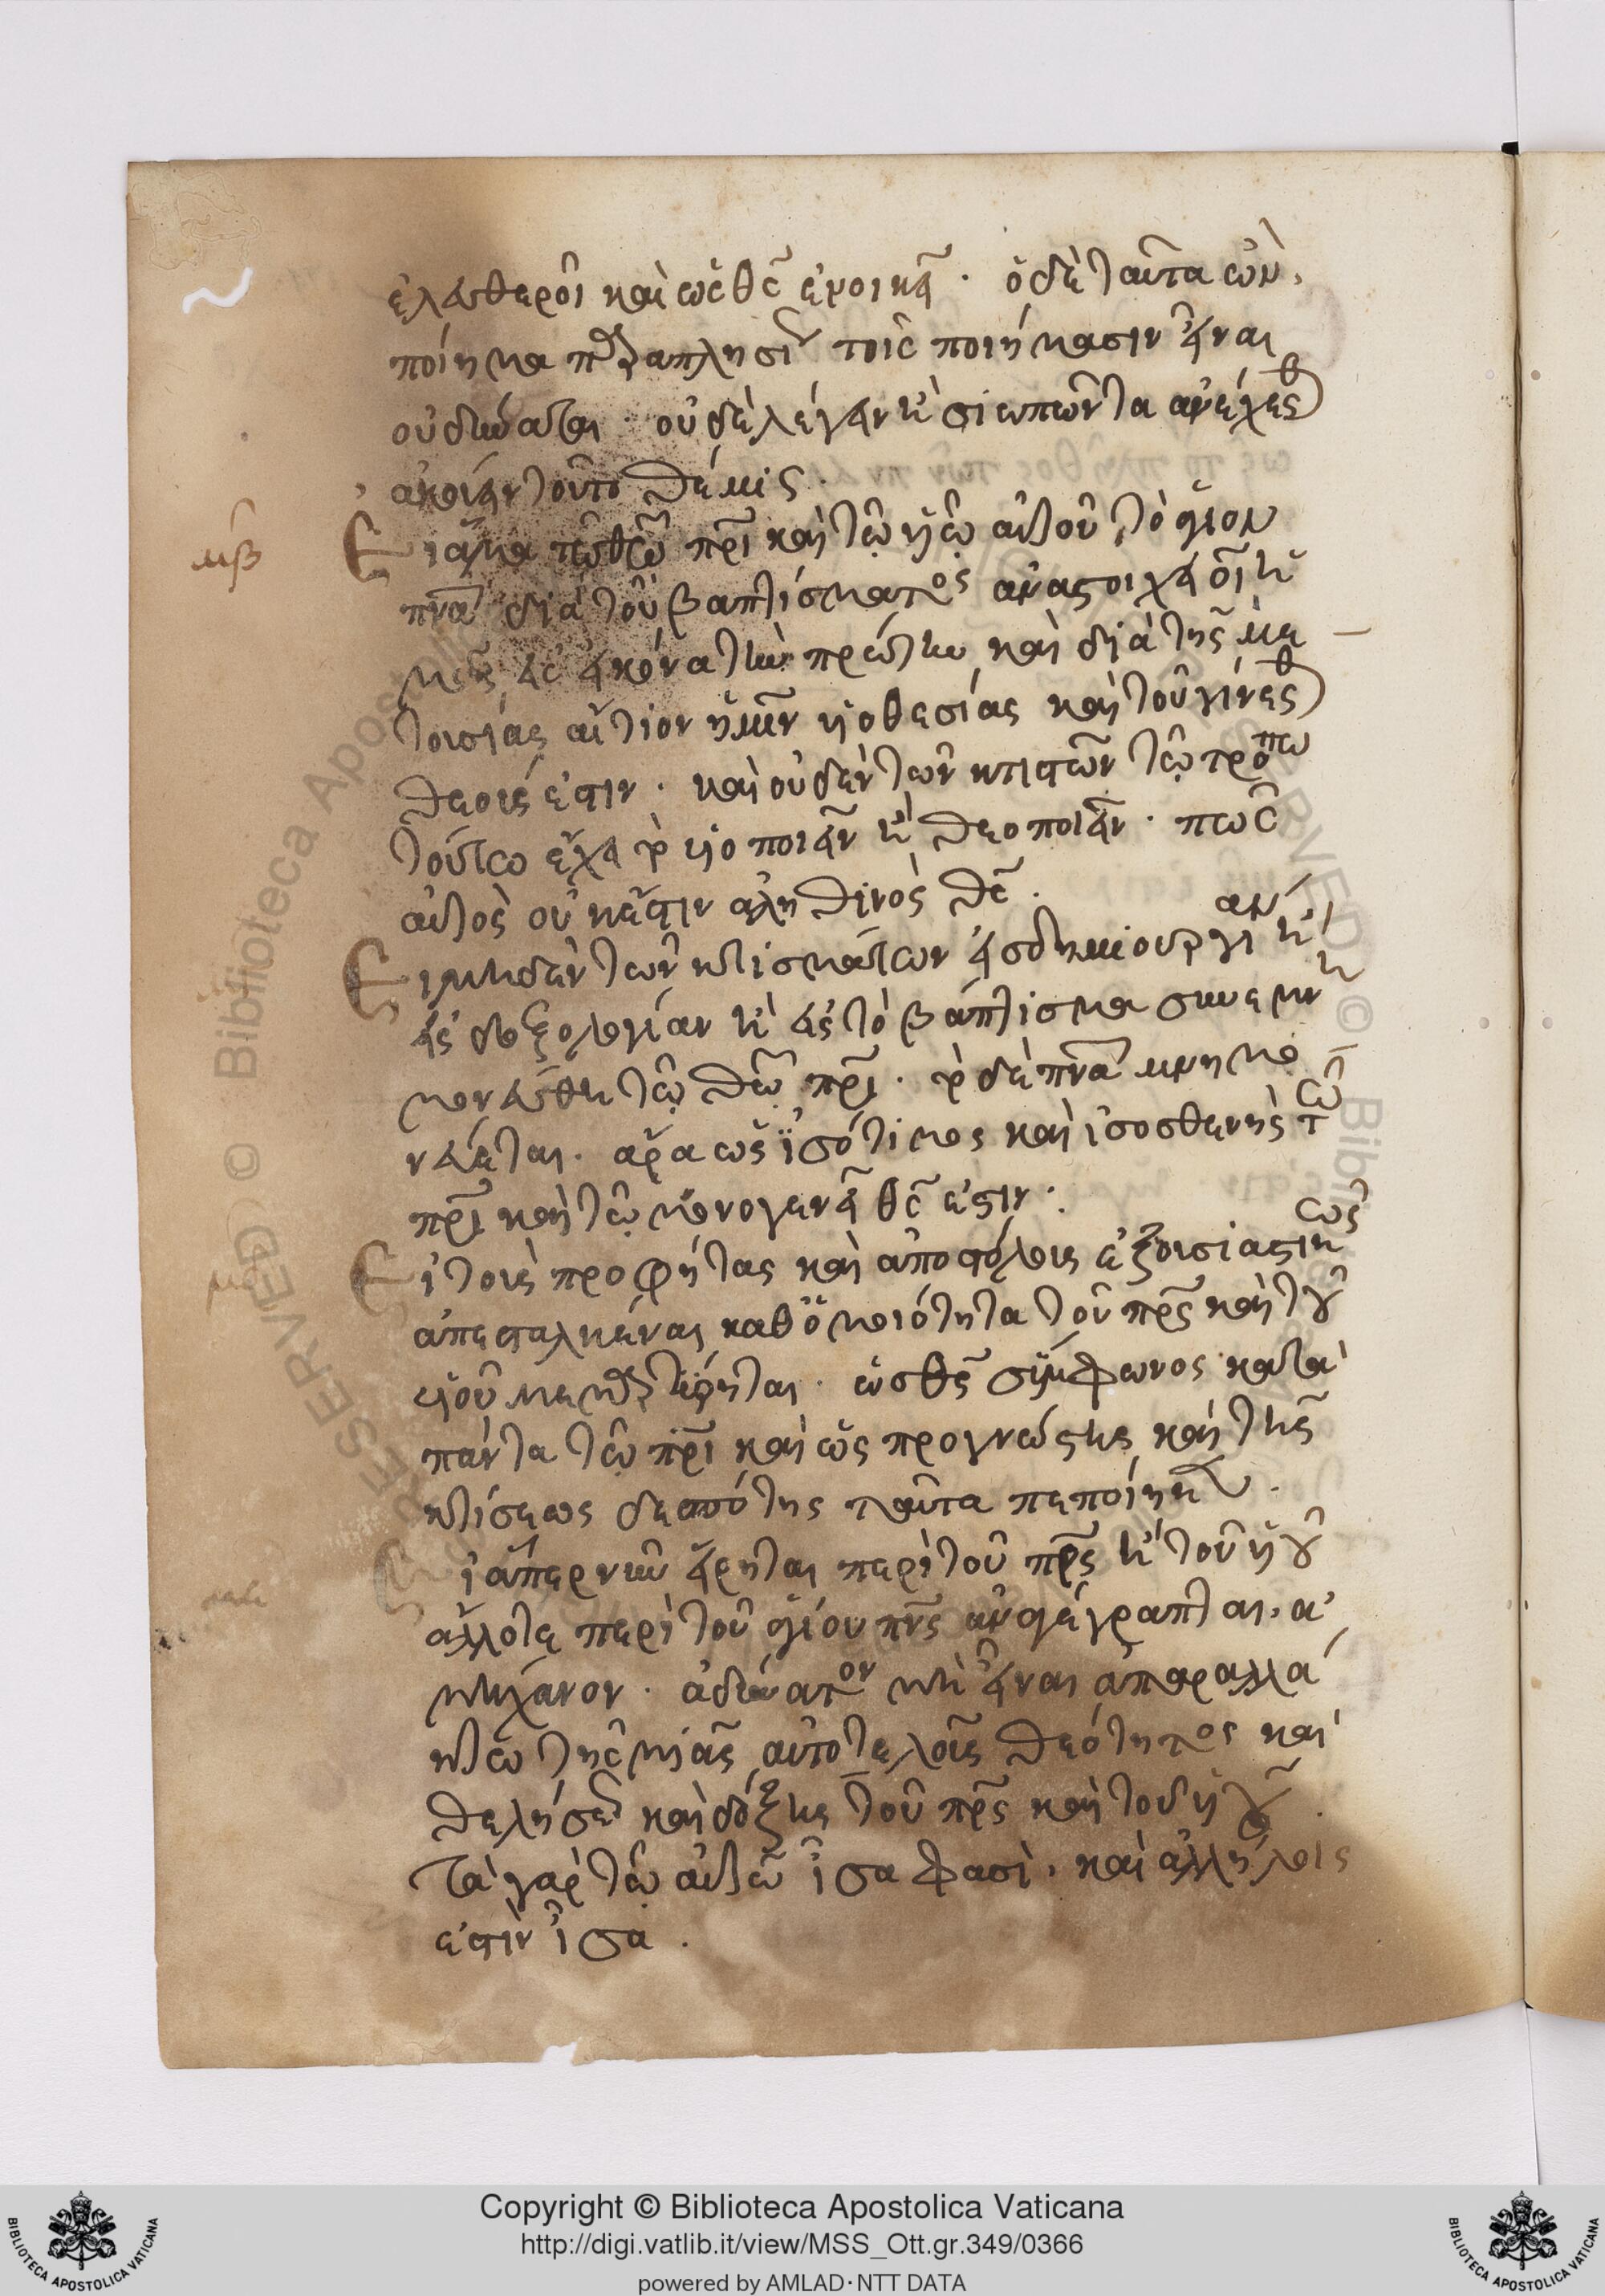 ἐλευθεροῖ καὶ ὡς θς ἐνοικεῖ · ὁ δὲ ταῦτα ὧν
ποίημα παραπλησι τοῖς ποιήμασιν εἶναι
οὐ δύναται · οὐδὲ λέγειν κ σιωπῶντα ἀνέχεσθ
ἀκούειν τοῦτο θέμις ·
Εἰ ἅμα τῶ θῶ πρὶ καὶ τῶ υἱῶ αὐτοῦ τὸ ἅγιον
πνα διὰ τοῦ βαπτίσματος ἀναστοιχειοῖ
ἡμᾶς εἰς εἰκόνα τὴν πρώτην καὶ διὰ τῆς με
τουσίας αἴτιον ἡμῖν υἱοθεσίας καὶ τοῦ γίνεσθ
θεούς ἐστιν · καὶ οὐδὲν τῶν κτιστῶν τῶ τρόπω
τούτω ἔχει τὸ υἱοποιεῖν κ θεοποιεῖν · πῶς
αὐτὸς οὐκ ἔστιν ἀληθινὸς θς ·
Εἰ μηδὲν τῶν κτισμάτων εἰς δημιουργίαν κ
εἰς δοξολογίαν κ εἰς τὸ βάπτισμα συνεμνη
μονεύθη τῶ θῶ πρὶ · τὸ δὲ πνα μνημο
νεύεται · ἄρα ὡς ἰσότιμος καὶ ἰσοσθενὴς τῶ
πρὶ καὶ τῶ μονογενεῖ θς ἐστιν ·
Εἰ τοὺς προφήτας καὶ ἀποστόλους ἐξουσιαστικῶς
ἀπεσταλκέναι καθ' ὁμοιότητα τοῦ πρς καὶ τοῦ
υἱοῦ μεμαρτύρηται · ὡς θς σύμφωνος κατὰ
πάντα τῶ πρὶ καὶ ὡς προγνώστης καὶ τῆς
κτίσεως δεσπότης ταῦτα πεποίηκεν ·
Εἰ ἅπερ νῦν εἴρηται περὶ τοῦ πρς κ τοῦ υἱοῦ
ἄλλοτε περὶ τοῦ ἁγίου πνς ἀναγέγραπται · ἀ
μήχανον · ἀδύνατον μὴ εἶναι ἀπαραλλά
κτω τῆς μιᾶς αὐτοτελοῦς θεότητος καὶ
θελήσεως καὶ δόξης τοῦ πρς καὶ τοῦ υἱοῦ ·
Τὰ γὰρ τῶ αὐτῶ ἴσα φασὶ · καὶ ἀλλήλοις
ἐστὶν ἴσα ·
μβ
Copyright © Biblioteca Apostolica Vaticana
http://digi.vatlib.it/view/MSS_Ott.gr.349/0366
powered by AMLAD·NTT DATA
BIBLIOTECA APOSTOLICA VATICANA
BIBLIOTECA APOSTOLICA VATICANA